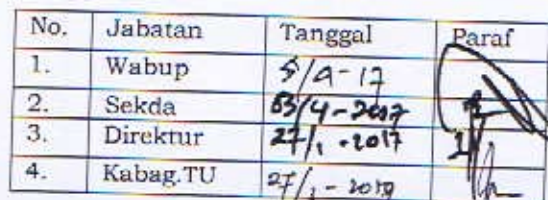 No. Jabatan Tanggal Paraf
1. Wabup 5/4-17
2. Sekda 03/4-2017
3. Direktur 27/1-2017
4. Kabag.TU 27/1-2017